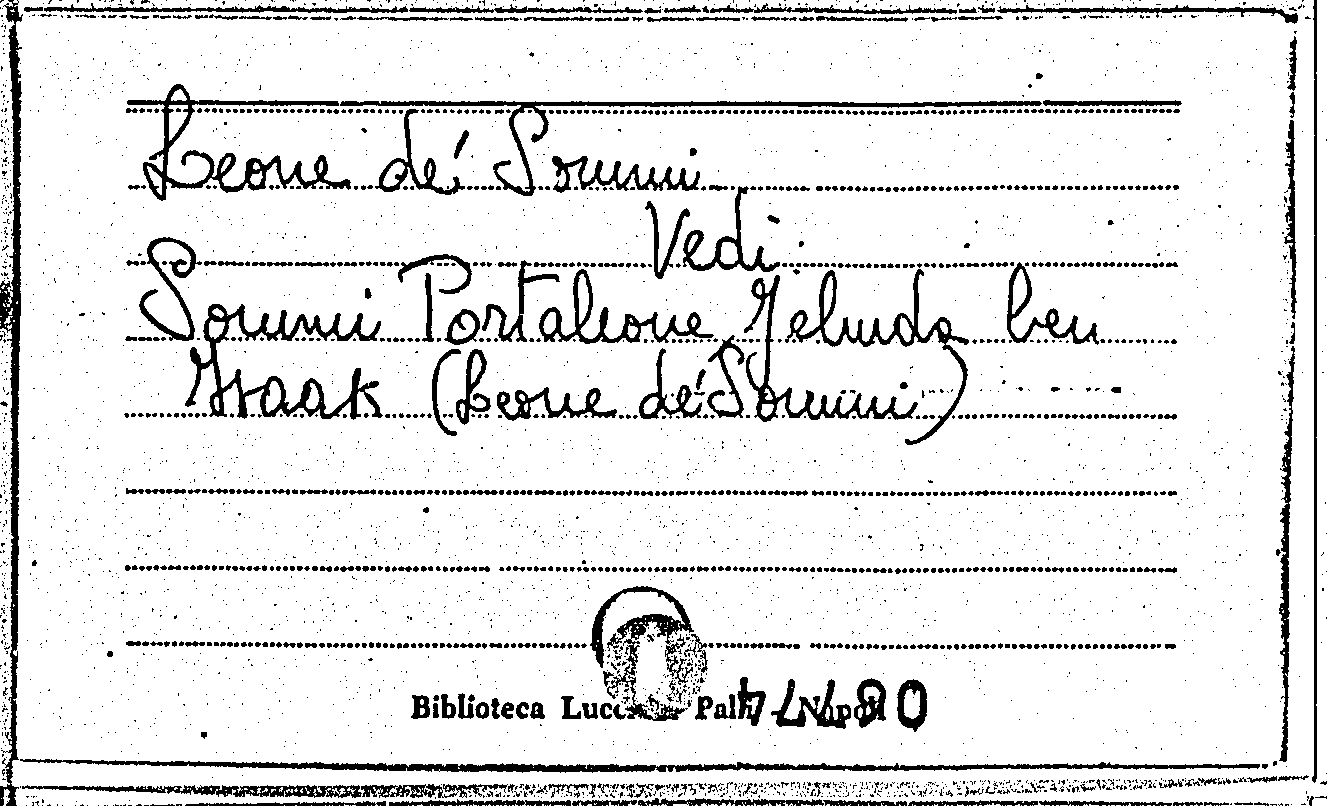 Leone de' Sommi
Vedi:
Sommi Portaleone Jehuda ben
Isaak (Leone de' Sommi)
Biblioteca Napoli